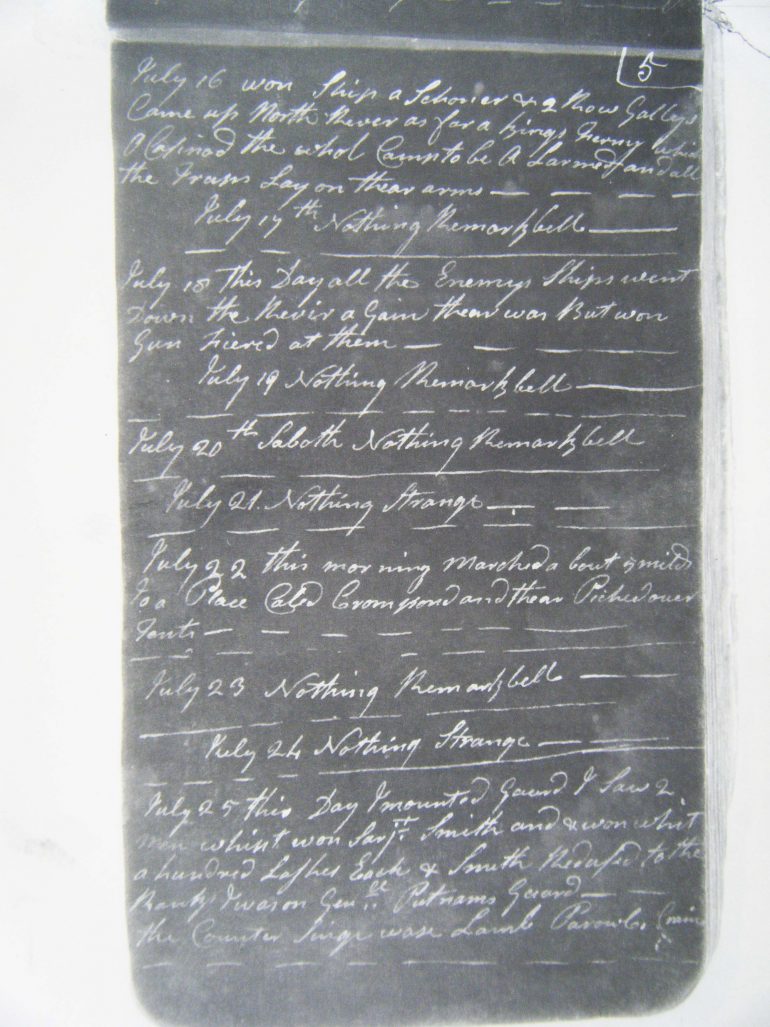 5
July 16 won Ship a Schoner & 2 Row Galleys
Came up North River as far a kings Ferry which
O Casined the whol Camp to be A Larmed and all
the Troops Lay on thear arms
July 17th Nothing Remarkbell
July 18 this Day all the Enemys Ships went
Down the River a Gain thear was But won
Gun Fiered at them
July 19 Nothing Remarkbell
July 20th Saboth Nothing Remarkbell
July 21. Nothing Strange
July 22 this morning marched a bout miles
to a Place Caled Crompond and thear Piched ower
Tents
July 23 Nothing Remarkbell
July 24 Nothing Strange
July 25 this Day I mounted Gaard I Saw 2
men whipt won Sarjt. Smith and & won whit
a hundred Lashes Each & Smith Redused to the
Ranks I was on Genll Putnams Gaard
the Counter Singe wase Lamb Parole Crain